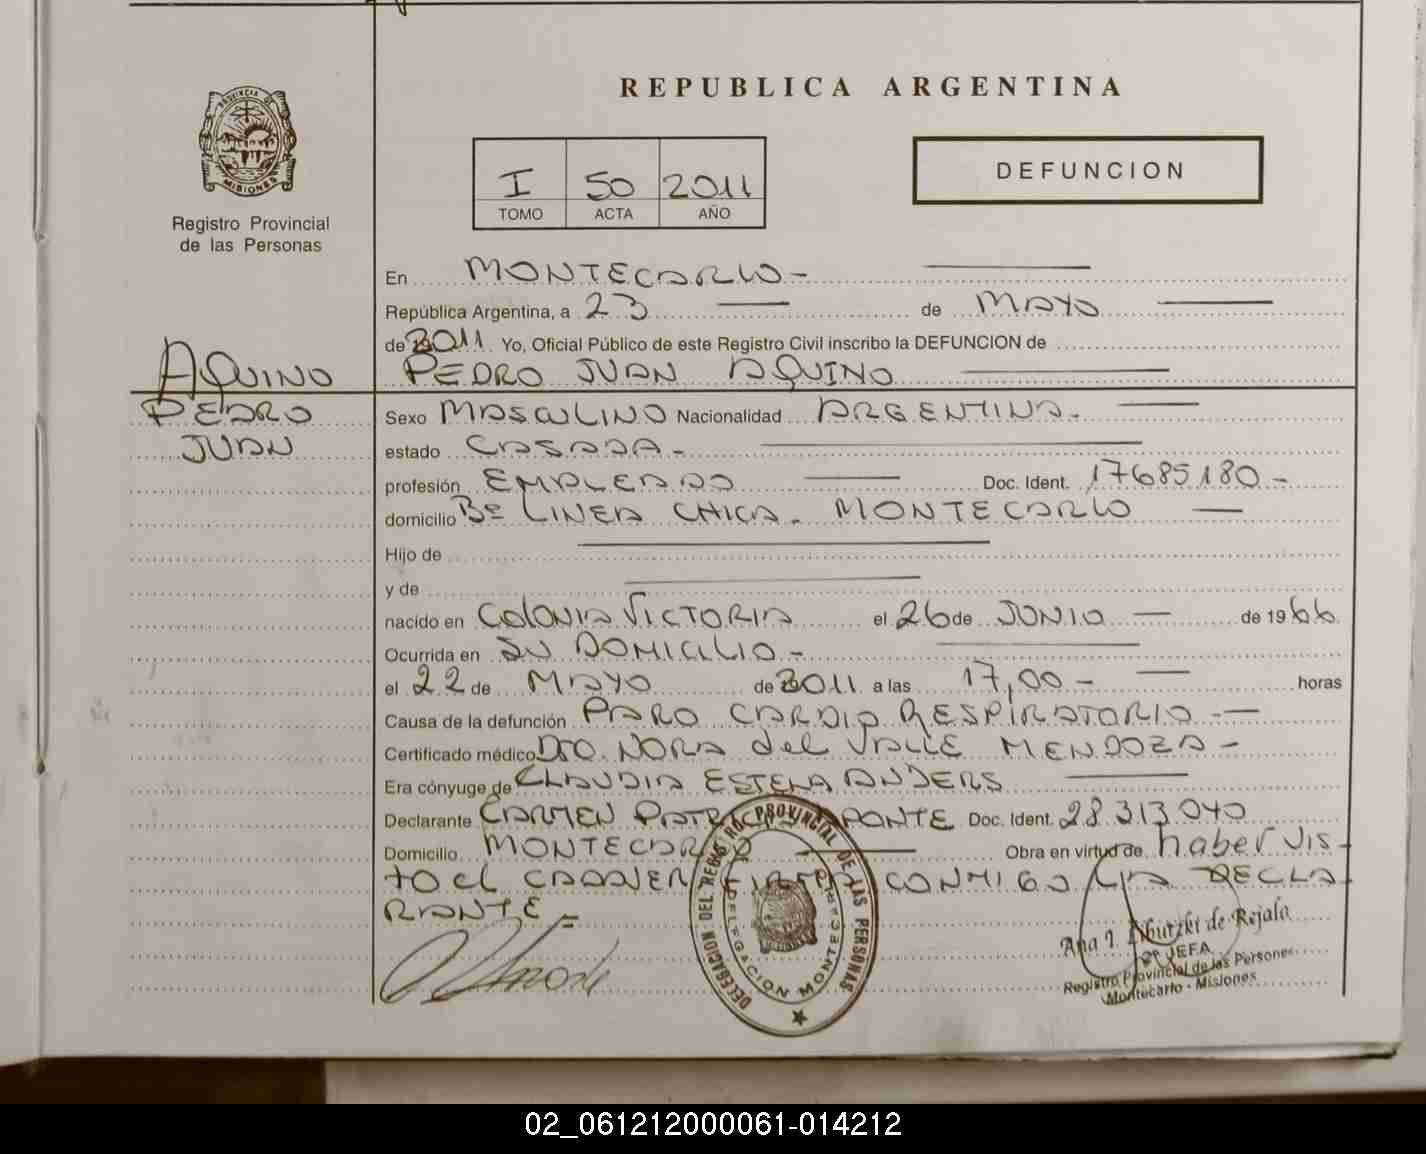 REPUBLICA ARGENTINA
PROVINCIA DE
MISIONES
Registro Provincial
de las Personas
I 50 2011
TOMO ACTA AÑO
DEFUNCION
En MONTECARLO -
República Argentina, a 23 de MAYO
de 2011. Yo, Oficial Público de este Registro Civil inscribo la DEFUNCION de
AQUINO PEDRO JUAN AQUINO
PEDRO Sexo MASCULINO Nacionalidad ARGENTINA -
JUAN estado CASADA -
profesión EMPLEADO Doc. Ident. 17685180 -
domicilio Bº LINEA CHICA - MONTECARLO
Hijo de
y de
nacido en COLONIA VICTORIA el 26 de JUNIO de 1966
Ocurrida en SU DOMICILIO -
el 22 de MAYO de 2011 a las 17,00 - horas
Causa de la defunción PARO CARDIO RESPIRATORIO -
Certificado médico Dra. NORA del VALLE MENDOZA -
Era cónyuge de CLAUDIA ESTELA ANDERS
Declarante CARMEN PATRICIA APONTE Doc. Ident. 28.313.040
Domicilio MONTECARLO Obra en virtud de haber VIS-
TO el CADAVER FIRMA CONMIGO LA DECLA-
RANTE -
DELEGACION DEL REGISTRO PROVINCIAL DE LAS PERSONAS
DELEGACION MONTECARLO
Ana I. de Rejala
2º JEFA
Registro Provincial de las Personas
Montecarlo - Misiones
02_061212000061-014212